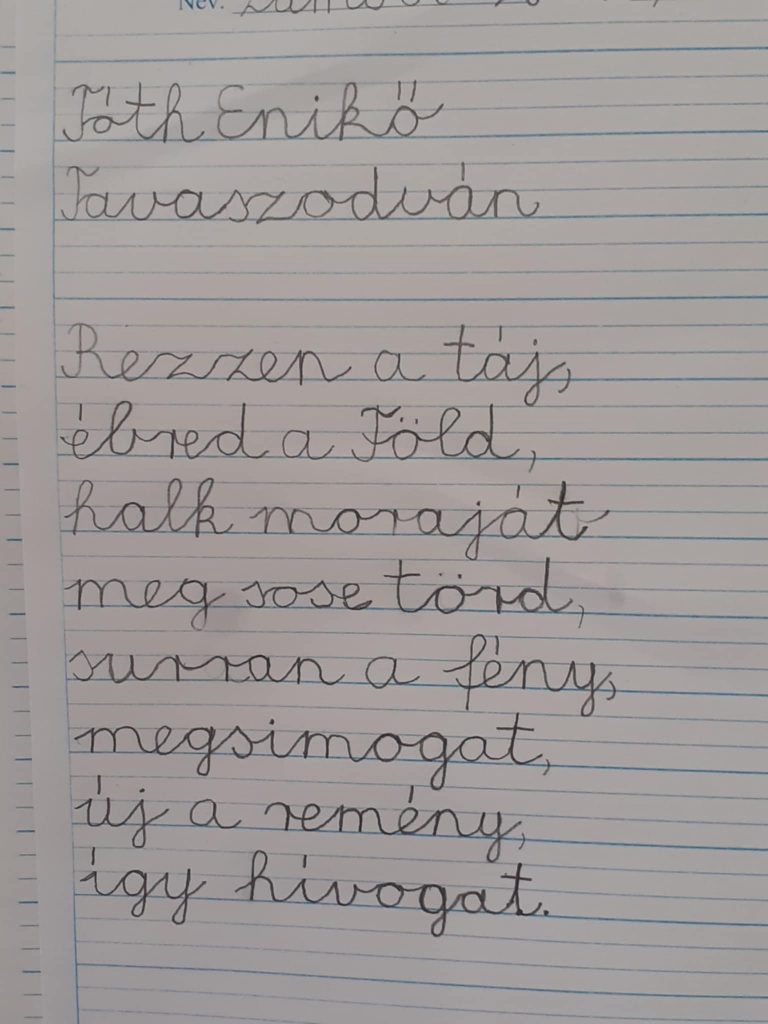 Név:
Tóth Enikő
Tavaszodván
Rezzen a táj,
ébred a Föld,
halk moraját
meg sose törd,
surran a fény,
megsimogat,
új a remény,
így hívogat.